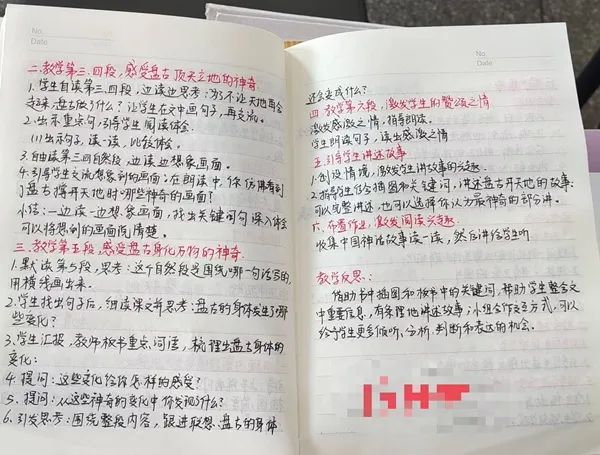 No.
Date
二.教学第三.四段,感受盘古顶天立地的神奇
1.学生自读第三.四段,边读边思考:为了不让天地再合
拢来,盘古做了什么?让学生在文中画句子,再交流。
2.出示重点句,引导学生阅读体会.
(1)出示句子,读一读,比较体会。
3.自由读第三四自然段,边读边想象画面。
4.引导学生交流想象到的画面:在朗读中,你仿佛看到
了盘古撑开天地时哪些神奇的画面?
小结:一边读一边想象画面,找出关键词句深入体会
可以将想到的画面说清楚。
三.教学第五段,感受盘古身化万物的神奇.
1.默读第5段,思考:这个自然段是围绕哪一句话写的,
用横线画出来。
2.学生找出句子后,细读课文并思考:盘古的身体发生了哪
些变化?
3.学生汇报,教师板书重点词语,梳理出盘古身体的
变化:
4.提问:这些变化给你怎样的感受?
5.提问:从这些神奇的变化中你发现什么?
6.引发思考:围绕整段内容,跟进联想:盘古的身体
No.
Date
还会变成什么?
四.教学第六段,激发学生的赞颂之情
激发感激之情,指导朗读。
学生朗读句子,读出感激之情
五.引导学生讲述故事
1.创设情境,激发学生讲故事的兴趣.
2.指导学生借助插图和关键词,讲述盘古开天地的故事.
可以完整讲述,也可以选择你认为最神奇的部分讲。
六.布置作业,激发阅读兴趣
收集中国神话故事读一读,然后讲给学生听
教学反思:
借助书中插图和板书中的关键词,帮助学生整合文
中重要信息,有条理地讲述故事;小组合作交互方式,可以
给予学生更多倾听、分析、判断和表达的机会。